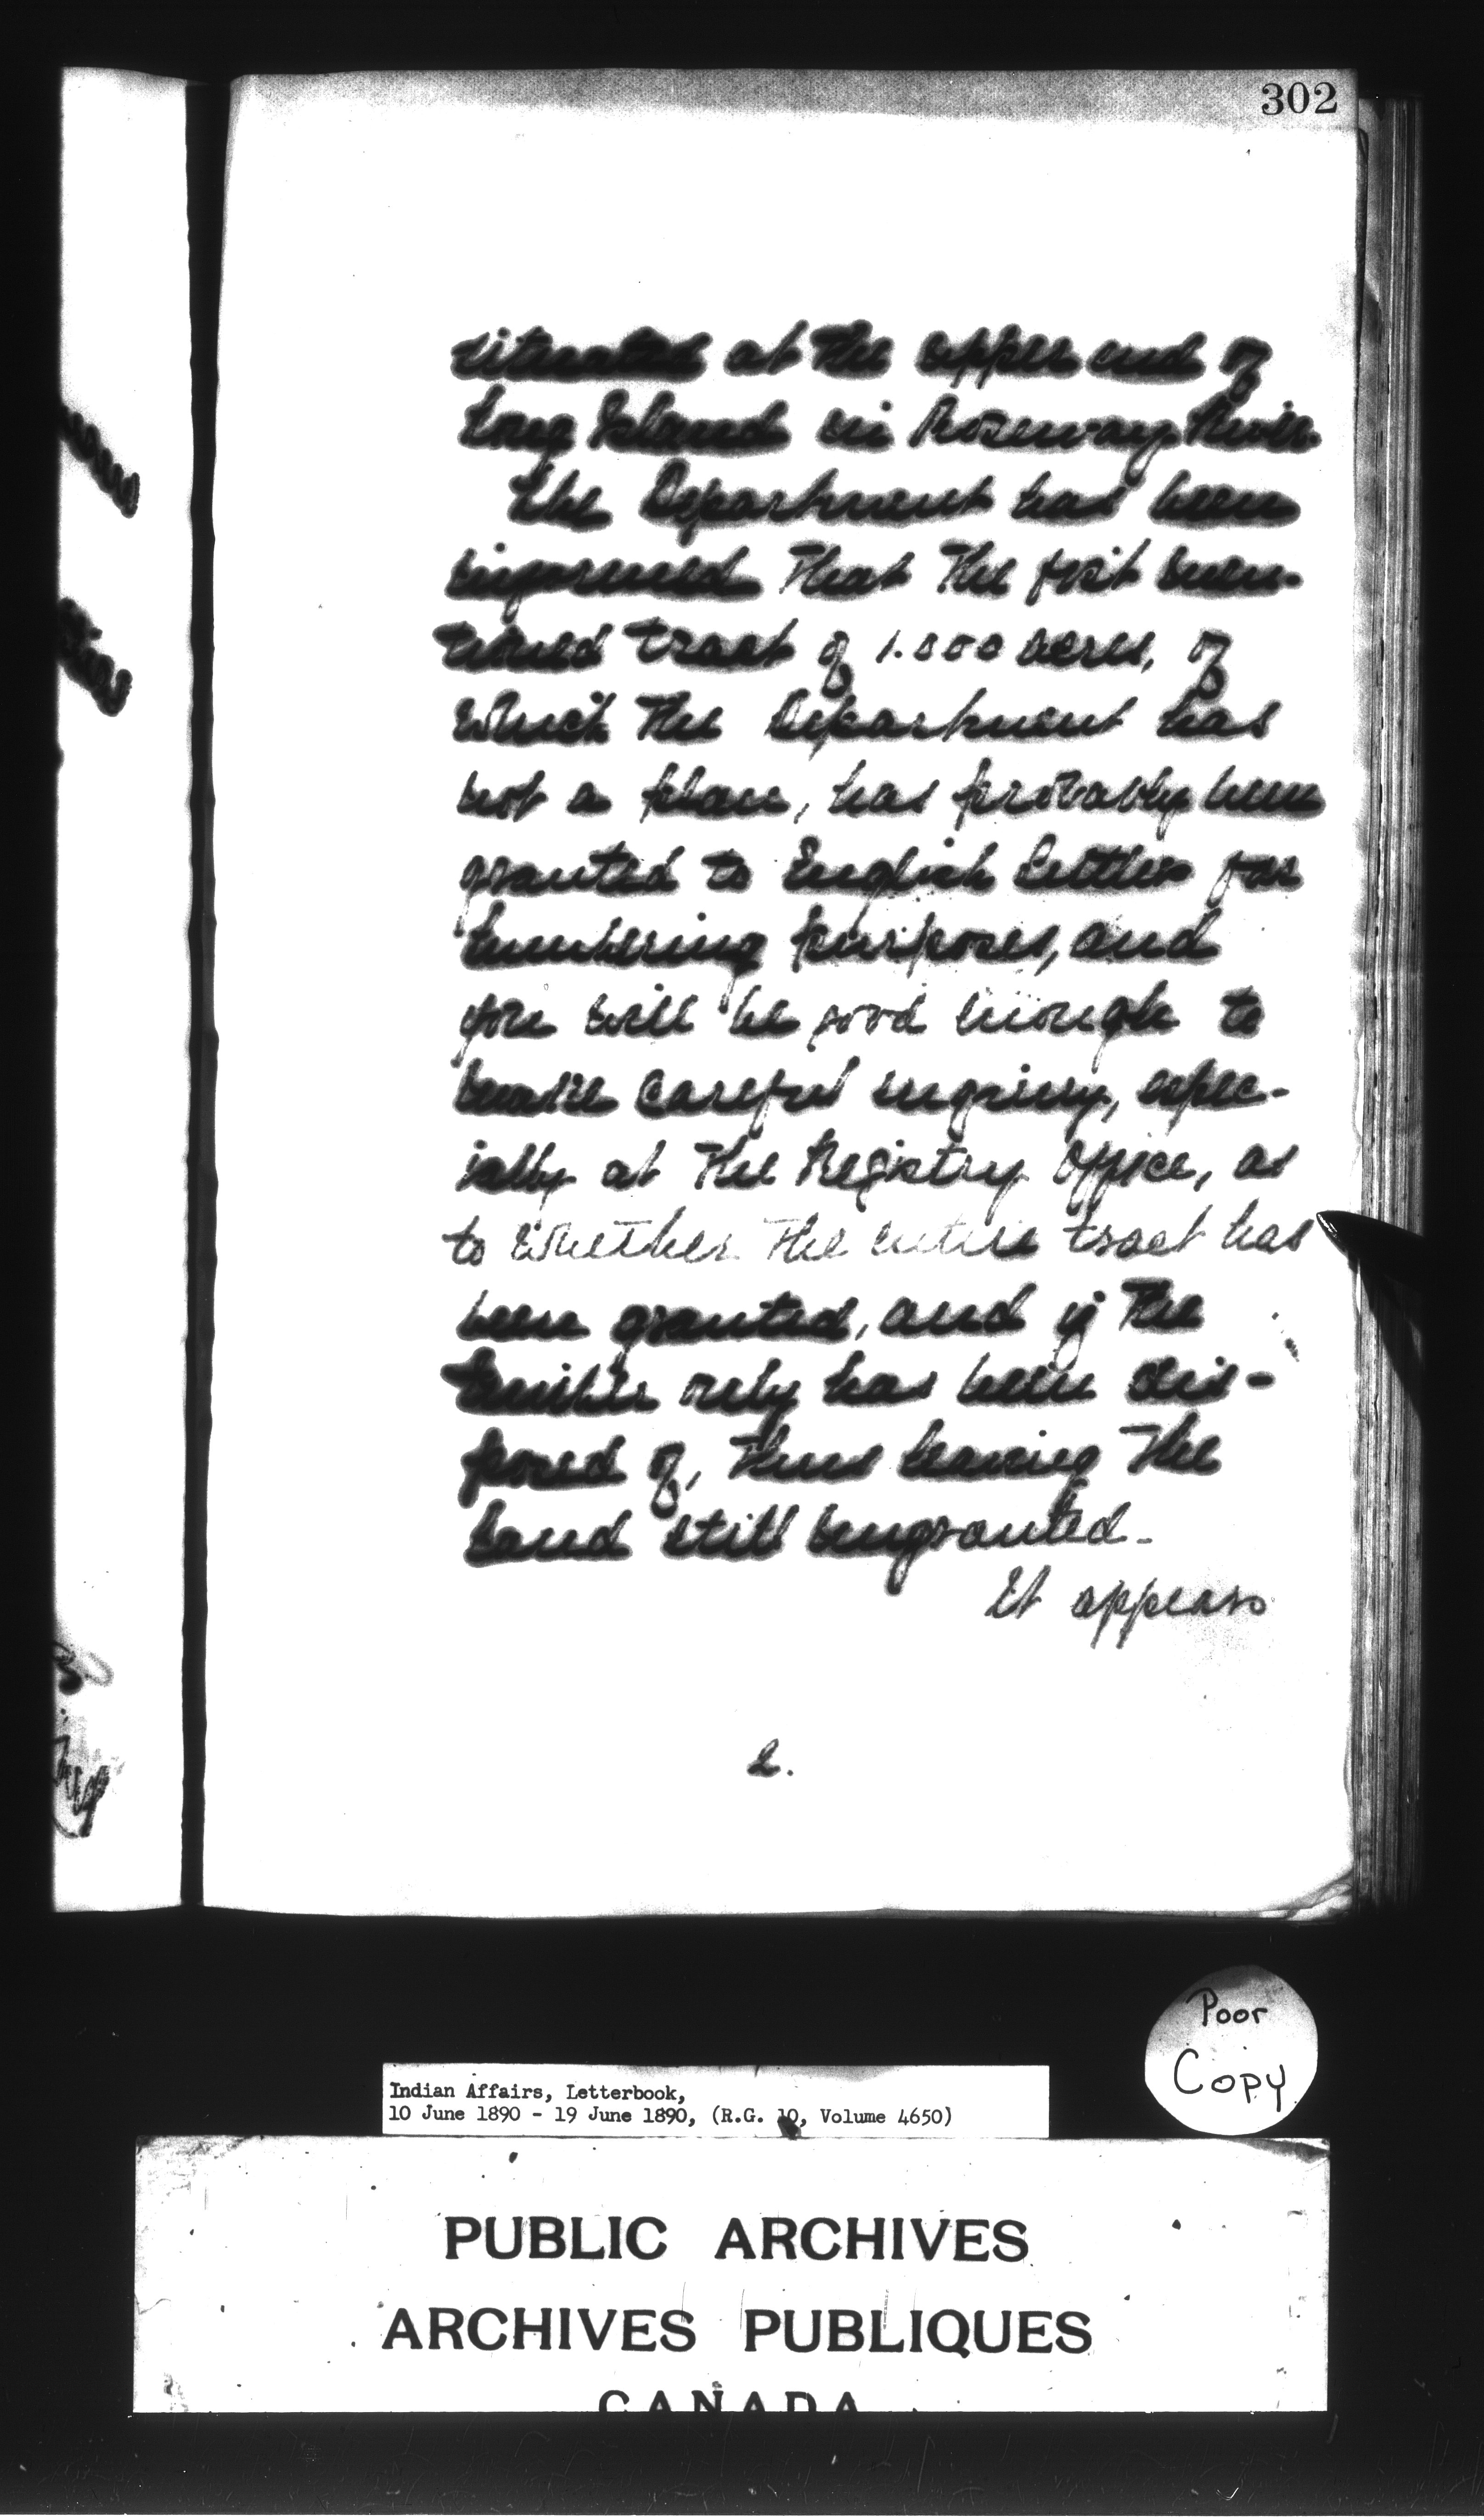 302
situated at the upper end of
Long Island in Roseway River.
The Department has been
informed that the first men-
tioned tract of 1.000 acres, of
which the Department has
not a plan, has probably been
granted to English Settlers for
lumbering purposes, and
you will be good enough to
make careful inquiry, espec-
ially at the Registry Office, as
to whether the entire tract has
been granted, and if the
timber only has been dis-
posed of, thus leaving the
land still ungranted.
It appears
2.
Poor
Copy
Indian Affairs, Letterbook,
10 June 1890 - 19 June 1890, (R.G. 10, Volume 4650)
PUBLIC ARCHIVES
ARCHIVES PUBLIQUES
CANADA